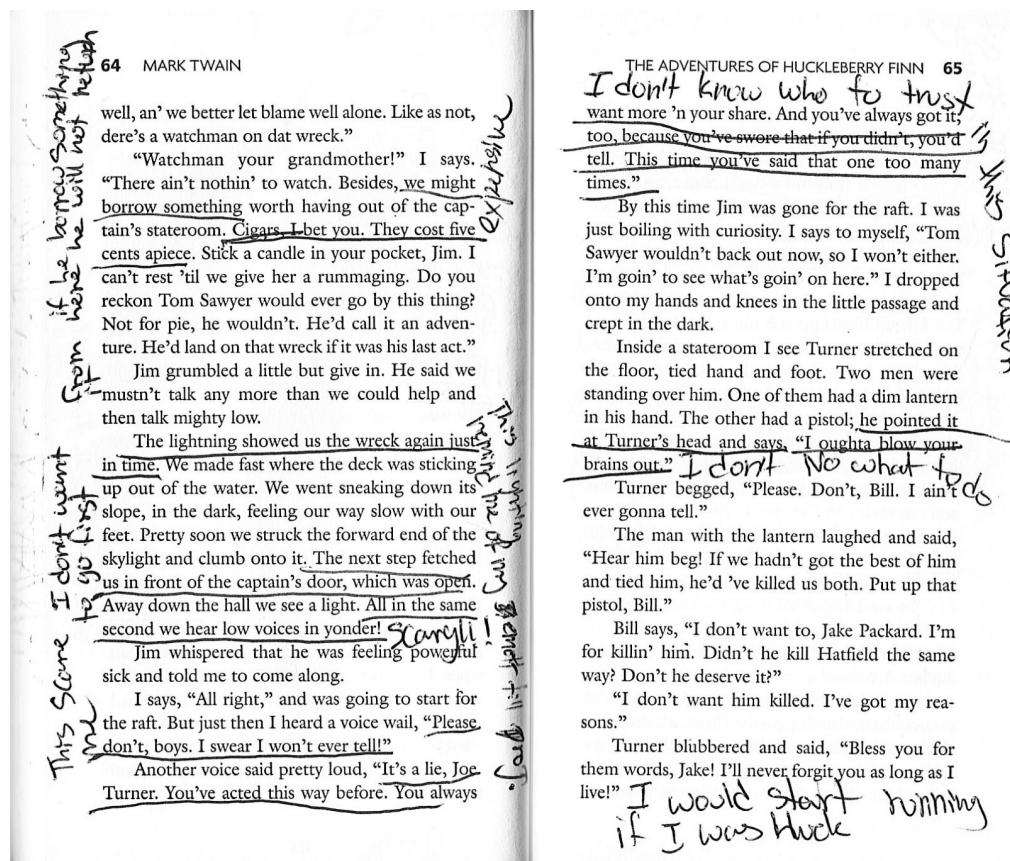 64 MARK TWAIN
if he borrow something
from here he will not return
it
expensive
well, an' we better let blame well alone. Like as not,
dere's a watchman on dat wreck."
"Watchman your grandmother!" I says.
"There ain't nothin' to watch. Besides, we might
borrow something worth having out of the cap-
tain's stateroom. Cigars, I bet you. They cost five
cents apiece. Stick a candle in your pocket, Jim. I
can't rest 'til we give her a rummaging. Do you
reckon Tom Sawyer would ever go by this thing?
Not for pie, he wouldn't. He'd call it an adven-
ture. He'd land on that wreck if it was his last act."
Jim grumbled a little but give in. He said we
mustn't talk any more than we could help and
then talk mighty low.
The lightning showed us the wreck again just
in time. We made fast where the deck was sticking
up out of the water. We went sneaking down its
slope, in the dark, feeling our way slow with our
feet. Pretty soon we struck the forward end of the
skylight and clumb onto it. The next step fetched
us in front of the captain's door, which was open.
Away down the hall we see a light. All in the same
second we hear low voices in yonder! Scary!!!
Jim whispered that he was feeling powerful
sick and told me to come along.
I says, "All right," and was going to start for
the raft. But just then I heard a voice wail, "Please
don't, boys. I swear I won't ever tell!"
Another voice said pretty loud, "It's a lie, Joe
Turner. You've acted this way before. You always
This Scare I don't want
me to go first
THE ADVENTURES OF HUCKLEBERRY FINN 65
I don't know who to trust
in this situation
want more 'n your share. And you've always got it,
too, because you've swore that if you didn't, you'd
tell. This time you've said that one too many
times."
By this time Jim was gone for the raft. I was
just boiling with curiosity. I says to myself, "Tom
Sawyer wouldn't back out now, so I won't either.
I'm goin' to see what's goin' on here." I dropped
onto my hands and knees in the little passage and
crept in the dark.
Inside a stateroom I see Turner stretched on
the floor, tied hand and foot. Two men were
standing over him. One of them had a dim lantern
in his hand. The other had a pistol; he pointed it
at Turner's head and says, "I oughta blow your
brains out." I don't No what to do
Turner begged, "Please. Don't, Bill. I ain't
ever gonna tell."
The man with the lantern laughed and said,
"Hear him beg! If we hadn't got the best of him
and tied him, he'd 've killed us both. Put up that
pistol, Bill."
Bill says, "I don't want to, Jake Packard. I'm
for killin' him. Didn't he kill Hatfield the same
way? Don't he deserve it?"
"I don't want him killed. I've got my rea-
sons."
Turner blubbered and said, "Bless you for
them words, Jake! I'll never forgit you as long as I
live!" I would start running
if I was Huck